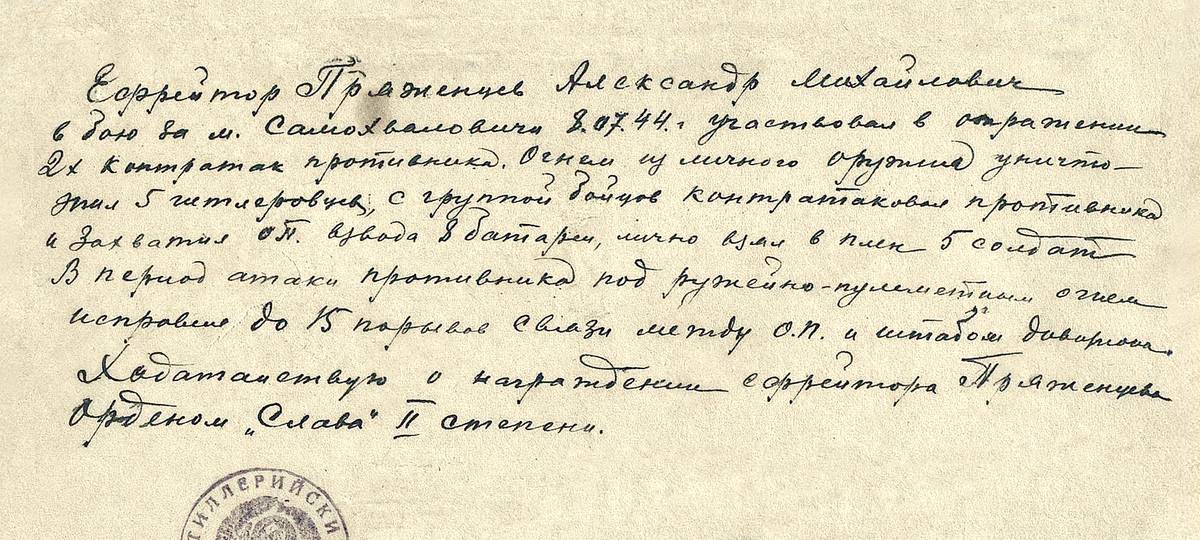 Ефрейтор Пряженцев Александр Михайлович
в бою за м. Самохваловичи 8.07.44.г участвовал в отражении
2х контратак противника. Огнем из личного оружия уничто-
жил 5 гитлеровцев, с группой бойцов контратаковал противника
и захватил ОП. взвода 8 батареи, лично взял в плен 5 солдат
В период атаки противника под ружейно-пулеметным огнем
исправил до 15 порывов связи между О.П. и штабом дивизиона.
Ходатайствую о награждении ефрейтора Пряженцева
Орденом „Слава" II степени.
ТИЛЛЕРИЙСКИ